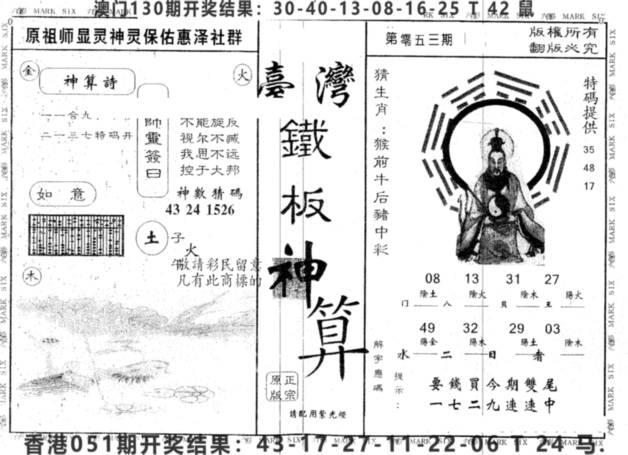 澳门130期开奖结果：30-40-13-08-16-25 T 42 鼠
原祖师显灵神灵保佑惠泽社群
金
神算詩
火
一一合九
二一三七特码开
師靈簽曰
不能旋反
视尔不臧
我思不远
控于大邦
神數猜碼
43 24 1526
如意
土
子
火
午
敬請彩民留意
凡有此商標的
木
臺灣
鐵板神算
正宗
原版
請配用紫光燈
第零五三期
版權所有
翻版必究
猜生肖：猴前牛后豬中彩
特碼提供
35
48
17
08 13 31 27
陰土 陰火 陰木 陽火
門 八 貝 王
49 32 29 03
陽金 陽木 陽土 陰木
水 二 日 者
解字應碼
提示：
要錢買今期雙尾
一七二九連連中
香港051期开奖结果：43-17-27-11-22-06 T 24 马.
MARK SIX